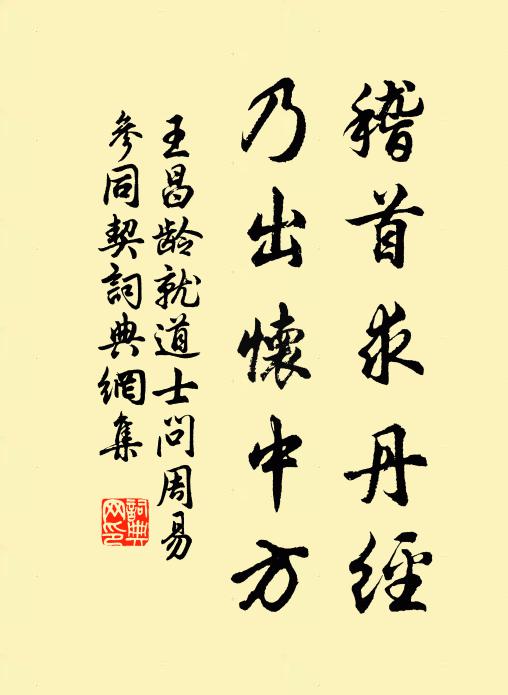 稽首求丹經
乃出懷中方
王昌龄就道士問周易
參同契詞典網集
詞典
网印